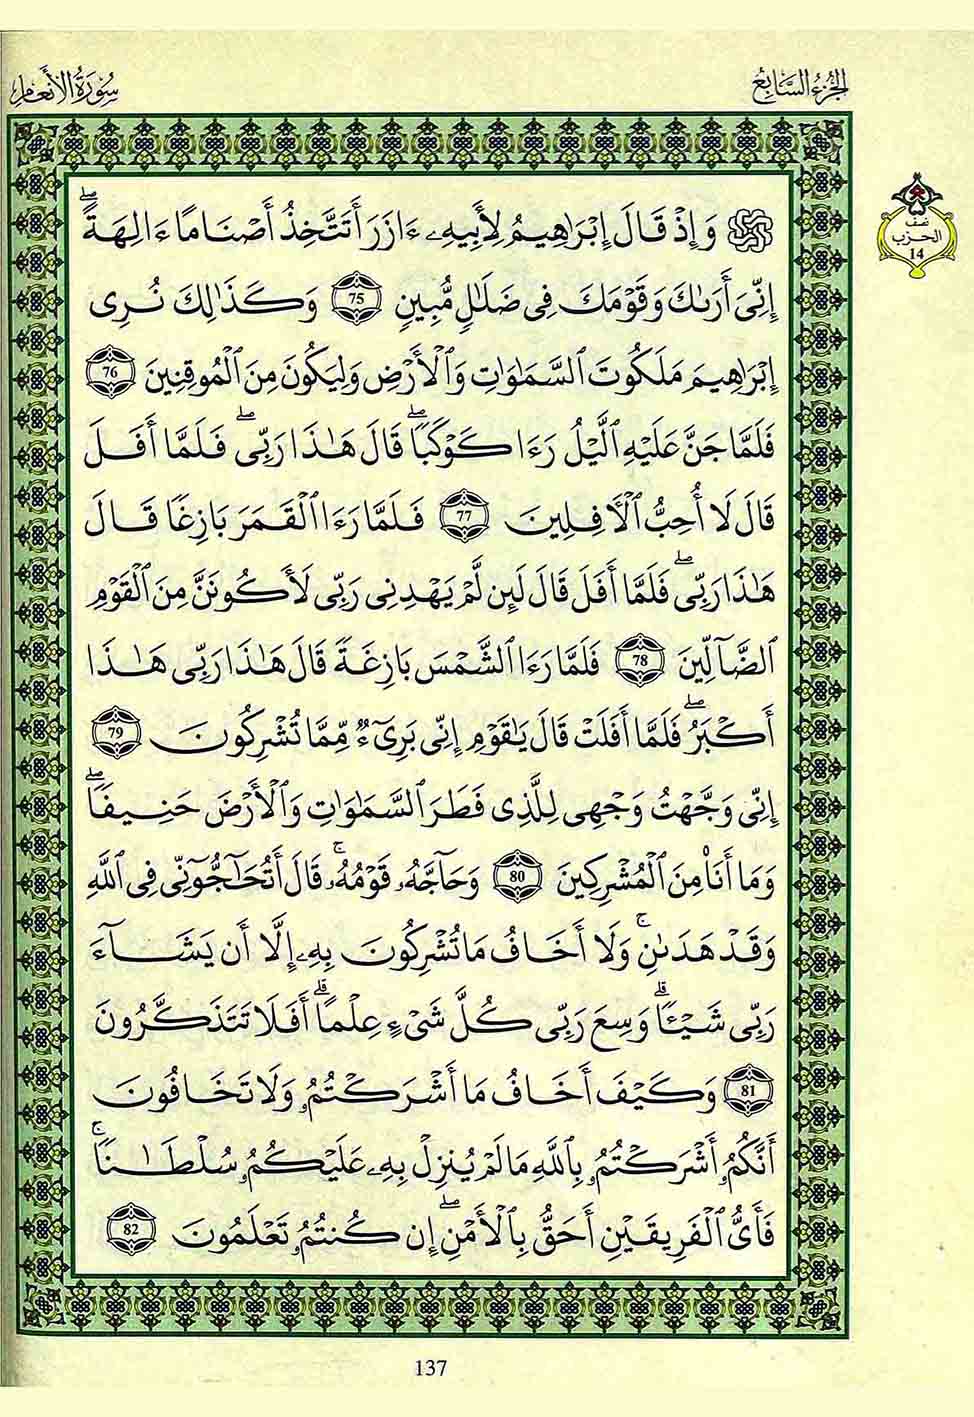 الجزء السابع
سورة الأنعام
نصف
الحزب
14
وَإِذْ قَالَ إِبْرَٰهِيمُ لِأَبِيهِ ءَازَرَ أَتَتَّخِذُ أَصْنَامًا ءَالِهَةً ۖ
إِنِّىَ أَرَىٰكَ وَقَوْمَكَ فِى ضَلَٰلٍ مُّبِينٍ 75 وَكَذَٰلِكَ نُرِى
إِبْرَٰهِيمَ مَلَكُوتَ ٱلسَّمَٰوَٰتِ وَٱلْأَرْضِ وَلِيَكُونَ مِنَ ٱلْمُوقِنِينَ 76
فَلَمَّا جَنَّ عَلَيْهِ ٱلَّيْلُ رَءَا كَوْكَبًا ۖ قَالَ هَٰذَا رَبِّى ۖ فَلَمَّا أَفَلَ
قَالَ لَا أُحِبُّ ٱلْأَفِلِينَ 77 فَلَمَّا رَءَا ٱلْقَمَرَ بَازِغًا قَالَ
هَٰذَا رَبِّى ۖ فَلَمَّا أَفَلَ قَالَ لَئِن لَّمْ يَهْدِنِى رَبِّى لَأَكُونَنَّ مِنَ ٱلْقَوْمِ
ٱلضَّآلِّينَ 78 فَلَمَّا رَءَا ٱلشَّمْسَ بَازِغَةً قَالَ هَٰذَا رَبِّى هَٰذَا
أَكْبَرُ ۖ فَلَمَّا أَفَلَتْ قَالَ يَٰقَوْمِ إِنِّى بَرِىٓءٌ مِّمَّا تُشْرِكُونَ 79
إِنِّى وَجَّهْتُ وَجْهِى لِلَّذِى فَطَرَ ٱلسَّمَٰوَٰتِ وَٱلْأَرْضَ حَنِيفًا ۖ
وَمَا أَنَا۠ مِنَ ٱلْمُشْرِكِينَ 80 وَحَآجَّهُۥ قَوْمُهُۥ ۚ قَالَ أَتُحَٰٓجُّوٓنِّى فِى ٱللَّهِ
وَقَدْ هَدَىٰنِ ۚ وَلَا أَخَافُ مَا تُشْرِكُونَ بِهِۦ إِلَّا أَن يَشَآءَ
رَبِّى شَيْـًٔا ۗ وَسِعَ رَبِّى كُلَّ شَىْءٍ عِلْمًا ۗ أَفَلَا تَتَذَكَّرُونَ
81 وَكَيْفَ أَخَافُ مَا أَشْرَكْتُمُۥ وَلَا تَخَافُونَ
أَنَّكُمُۥ أَشْرَكْتُمُۥ بِٱللَّهِ مَا لَمْ يُنزِلْ بِهِۦ عَلَيْكُمُۥ سُلْطَٰنًا ۚ
فَأَىُّ ٱلْفَرِيقَيْنِ أَحَقُّ بِٱلْأَمْنِ ۖ إِن كُنتُمُۥ تَعْلَمُونَ 82
137